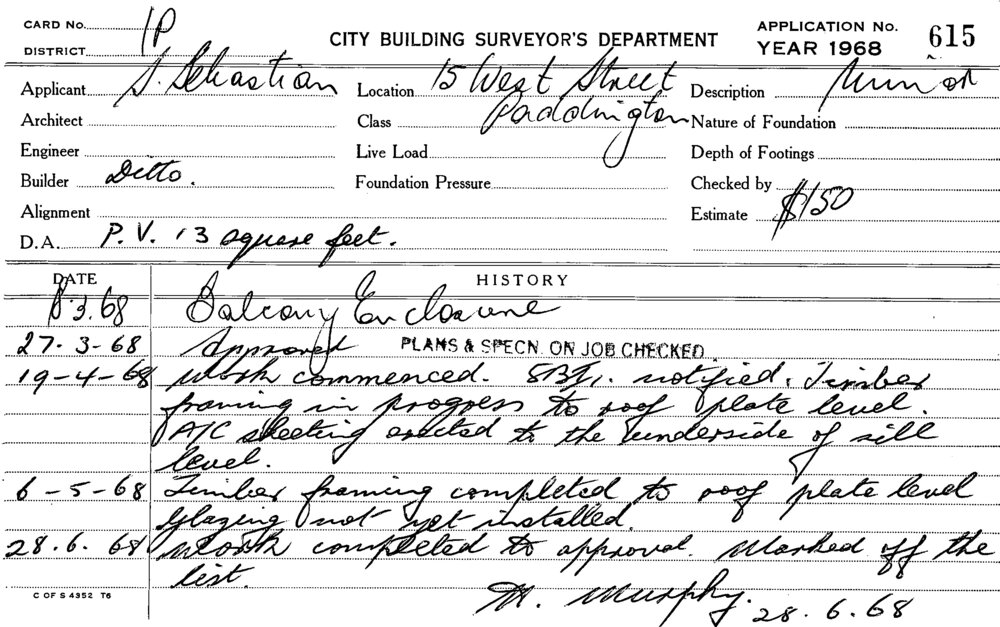 CARD No. 1P
DISTRICT
CITY BUILDING SURVEYOR'S DEPARTMENT
APPLICATION No. 615
YEAR 1968
Applicant J. Sebastian
Location 15 West Street
Paddington
Description
Architect
Class
Nature of Foundation
Engineer
Live Load
Depth of Footings
Builder Ditto.
Foundation Pressure
Checked by
Alignment
Estimate $150
D.A. P.V. 13 square feet.
DATE HISTORY
.3.68 Balcony Enclosure
27-3-68 Approved PLANS & SPECN. ON JOB CHECKED
19-4-68 Work commenced. notified. Timber
framing in progress to roof plate level.
A/C sheeting erected to the underside of sill
level.
6-5-68 Timber framing completed to roof plate level
Glazing not yet installed.
28.6.68 Work completed to approval. Marked off the
list.
M. Murphy. 28.6.68
C OF S 4352 T6